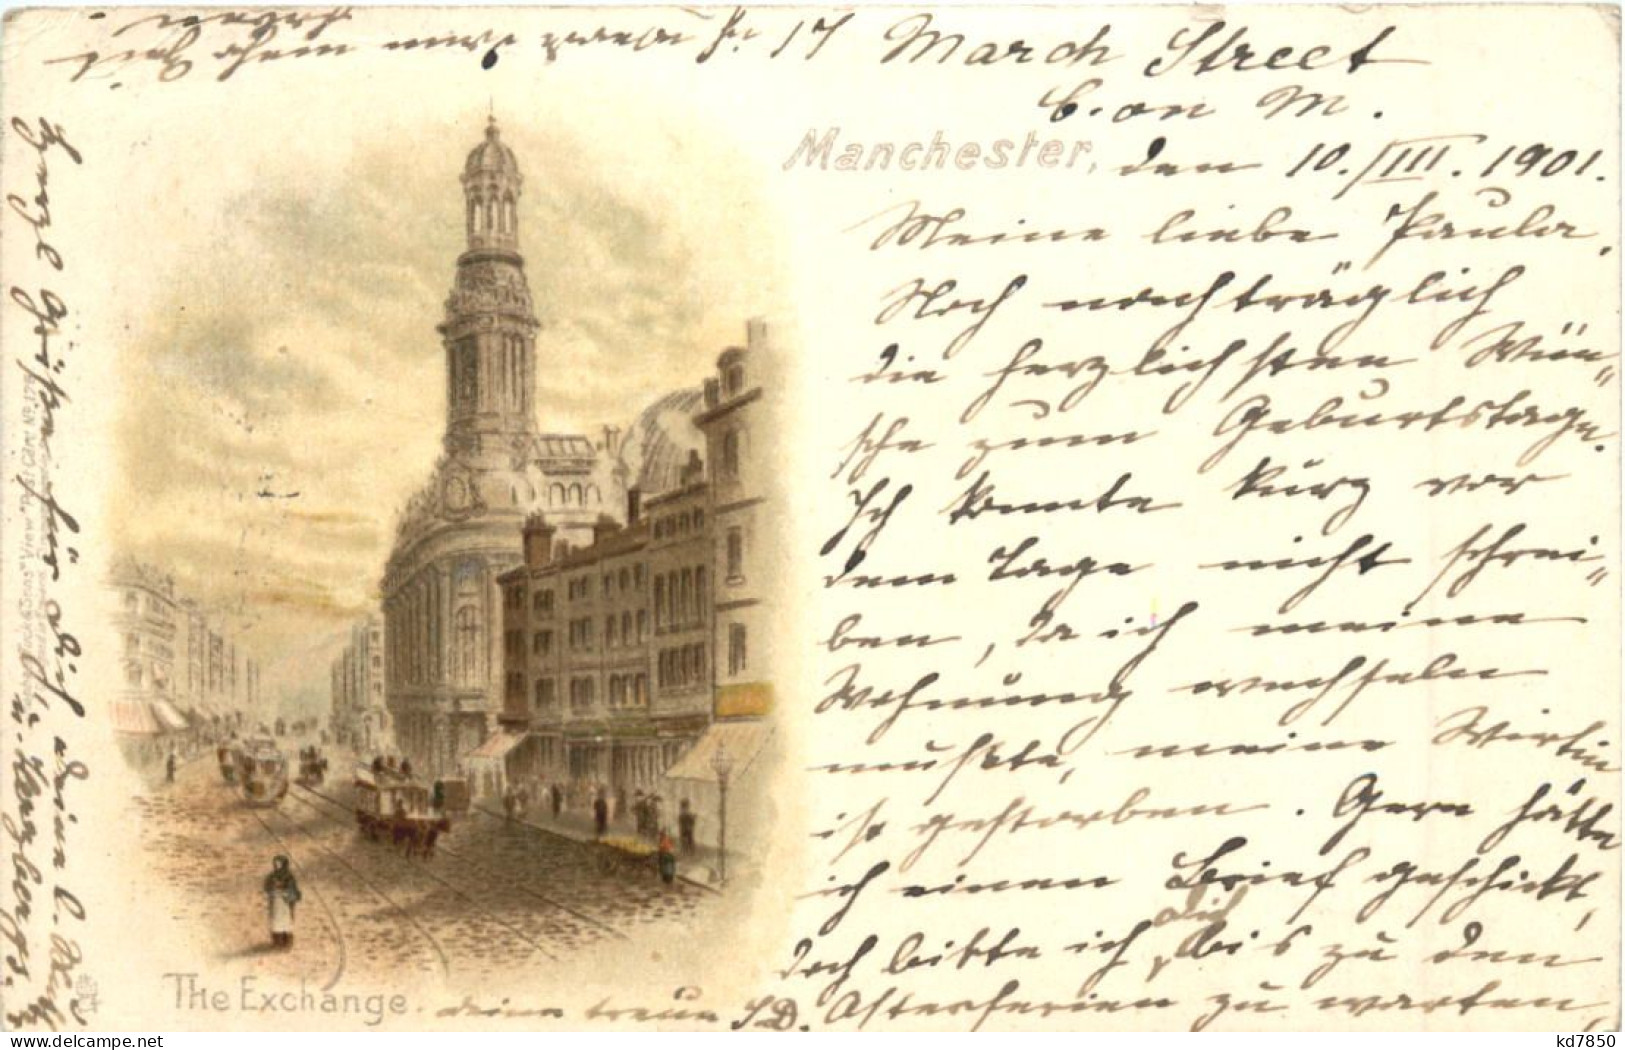 17 March Street
C. on M.
Manchester, den 10./III. 1901.
Meine liebe Paula.
Noch nachträglich
die herzlichsten Wün„
sche zum Geburtstage.
Ich konnte kurz vor
dem Tage nicht schrei„
ben, da ich meine
Wohnung wechseln
mußte, meine Wirtin
ist gestorben. Gern hätte
ich einen Brief geschickt,
doch bitte ich dich, bis zu den
Osterferien zu warten,
wo ich dann mehr Zeit
The Exchange.
deine treue
Herzl. Grüße für Dich, deine l.
u.
kd7850